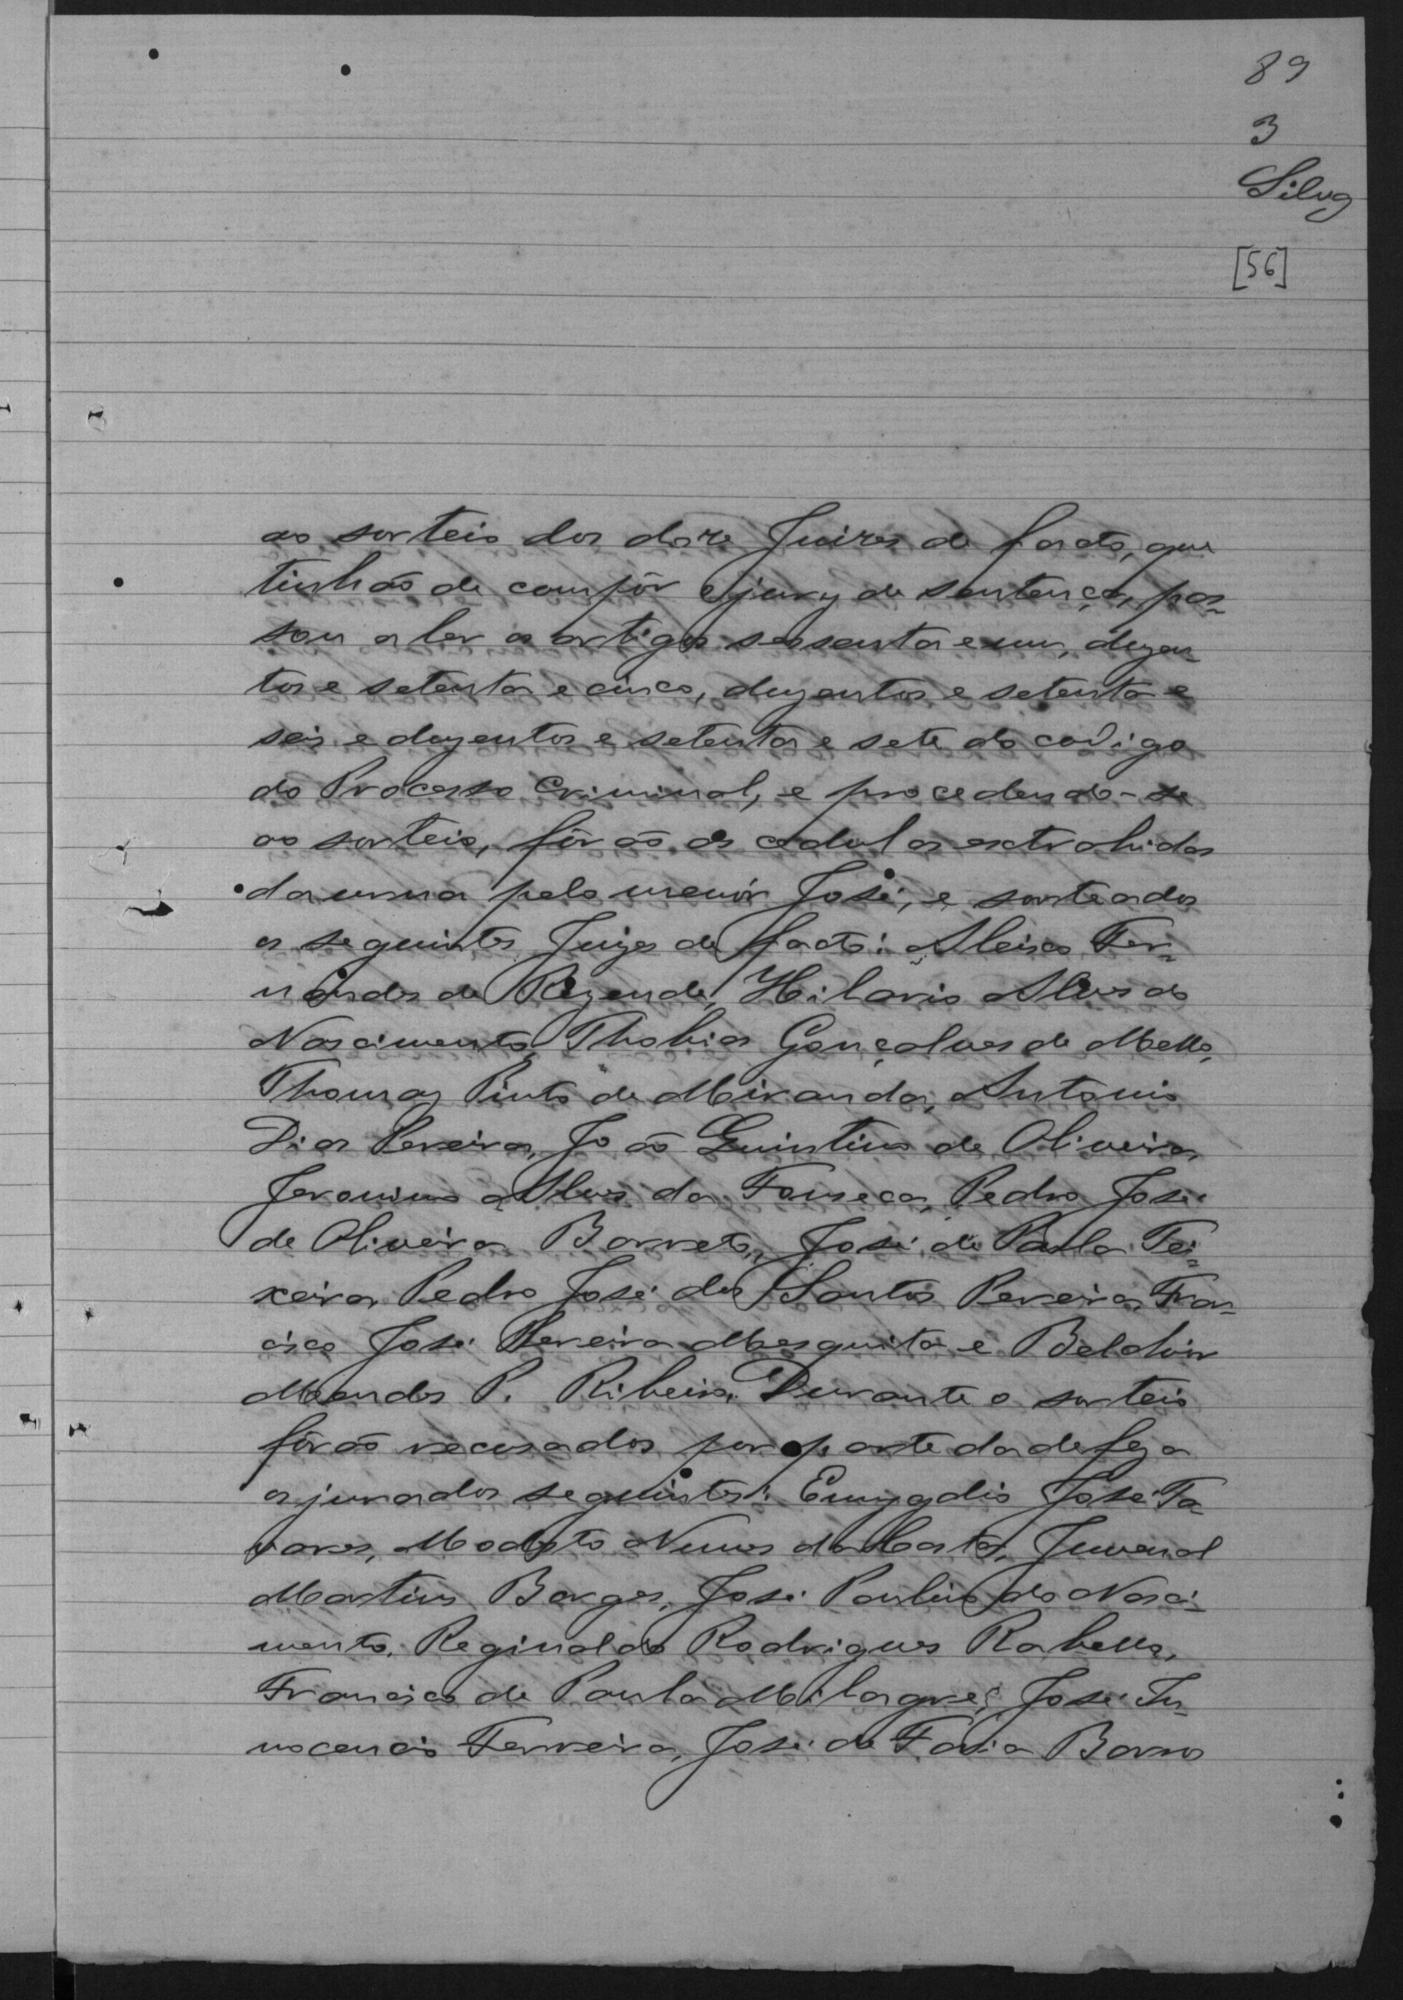 89
3
Silva
[56]
ao sorteio dos doze Juizes de facto, que
tinhão de compôr o jury de sentença, pas-
sou a ler os artigos sessenta e um, duzen-
tos e setenta e cinco, duzentos e setenta e
seis e duzentos e setenta e sete do codigo
do Processo Criminal, e procedendo-se
ao sorteio, fôrão as cedulas extrahidas
da urna pelo menór José, e sorteados
os seguintes Juizes de facto: Aleixo Fer-
nandes de Rezende, Hilario Alves do
Nascimento, Thobias Gonçalves de Mello,
Thomaz Pinto de Miranda, Antonio
Dias Pereira, João Quintino de Oliveira
Jeronimo Alves da Fonseca, Pedro José
de Oliveira Barreto, José de Paula Tei-
xeira Pedro José dos Santos Pereira Fran-
cisco José Pereira Mesquita e Belchior
Mendes P. Ribeiro. Durante o sorteio
fôrão recusados por parte da defeza
os jurados seguintes: Emygdio José Ta-
vares, Modesto Nunes da Costa, Juvenal
Martins Borges, José Paulino do Nasci-
mento, Reginaldo Rodrigues Rabello,
Francisco de Paula Milagres, José In-
nocencio Ferreira, José de Faria Barros